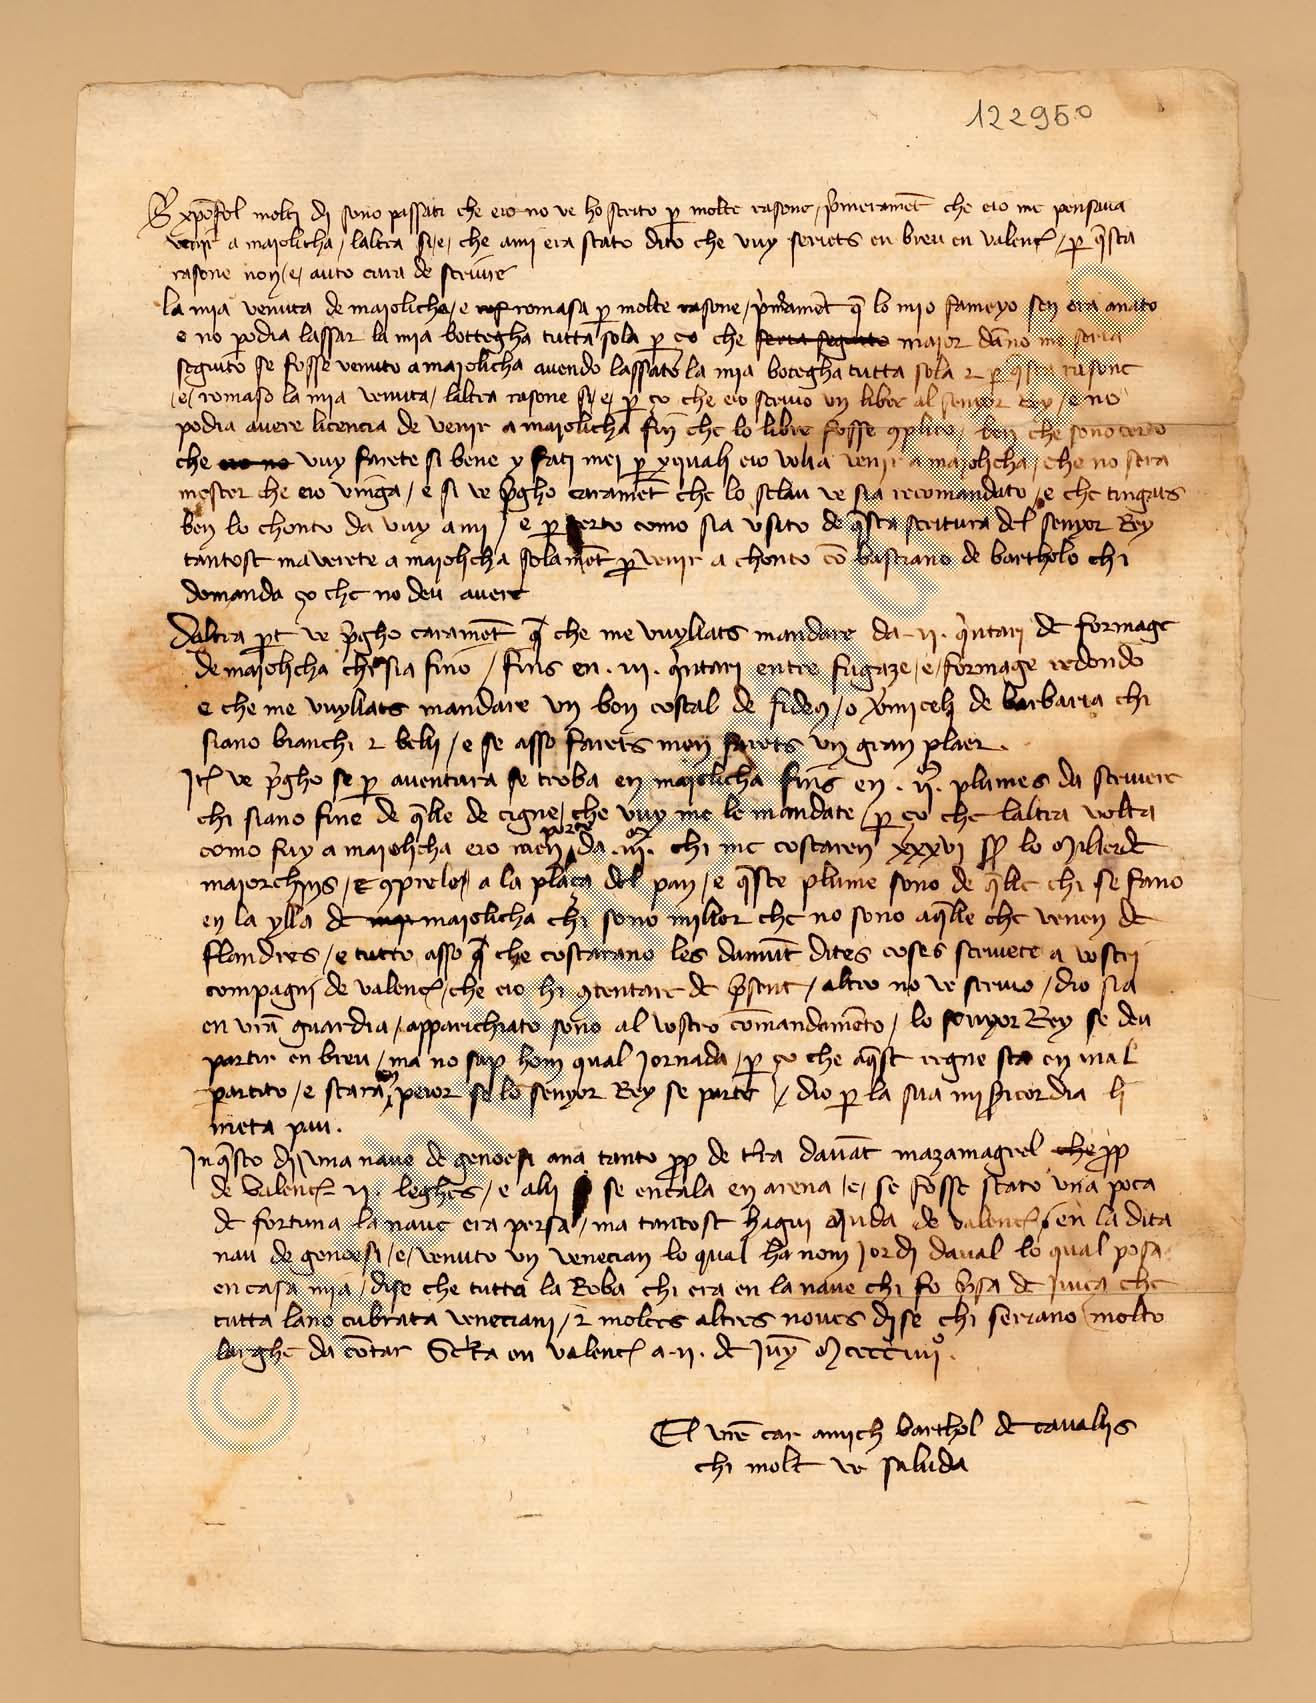 122950
Xpofol molti di sono passati che eio no ve ho scrito p molte rasone / primerament che eio me pensava
venir a maiolicha / laltra si / e / che ami era stato dito che vuy seriets en breu en valenc / p questa
rasone non / e / auto cura de scrivire
la mia venuta de maiolicha / e romasa p molte rasone / primament que lo mio fameyo sen era anato
e no podia lassar la mia bottegha tutta sola p ço che feria seguito maior danno me seria
seguito se fosse venuto a maiolicha avendo lassato la mia botegha tutta sola & p questa rasone
/ e / romaso la mia venuta / laltra rasone si / e / p ço che eio scrivo un libre al senyor Rey / e no
podia avere licencia de venir a maiolicha fin che lo libre fosse complito / ben che sono certo
che eio no vuy farete si bene y fati mei p y quali eio volia venir a maiolicha / che no sera
mester che eio vinga / e si ve pregho carament che lo sclau ve sia recomandato / e che tingats
ben lo chonto da vuy a mi / e p certo como sia usito de questa scritura del senyor Rey
tantost ma verete a maiolicha solament p venir a chonto con bastiano de bartholo chi
domanda ço che no deu avere
Daltra part ve pregho carament que che me vuyllats mandare da .ii. quintari de formage
de maiolicha che sia fino / fins en .iii. quintari entre fugaze / e / formage redondo
e che me vuyllats mandare un bon costal de fideus / o vermicelj de barbaria chi
siano bianchi & belli / e se asso farets men farets un gran plaer .
Itē ve pregho se p aventura se troba en maiolicha fins en . iiº . plumes da scrivere
chi siano fine de quelle de cigne / che vuy me le mandate / p ço che laltra volta
como fuy a maiolicha eio men porte da .iiiº. chi me costaren xxxvi ss lo miller de
maiorchins / e comprele a la plaça del pan / e queste plume sono de quelle chi se fano
en la ylla de maiolicha chi sono millor che no sono aquelle che venen de
flandres / e tutto asso que che costarano les damunt dites coses scrivete a vostri
compagni de valenc / che eio hi contentare de present / altro no ve scrivo / dio sia
en vra guardia / apparichiato sono al vostro comandamento / lo senyor Rey se deu
partir en breu / ma no sap hom qual jornada / p ço che aquest regne sta en mal
partito / e staran peior se lo senyor Rey se parte / dio p la sua misericordia li
meta pau .
In questo di una nave de genoesi ana tanto prop de terra davant mazamagrel che prop
de valenc ii . leghes / e alli se encala en arena / e / se fosse stato una poca
de fortuna la nave era persa / ma tantost hagui aiuda de valenc / en la dita
nau de genoesi / e / venuto un venecian lo qual ha nom jordi daval lo qual posa
en casa mia / dise che tutta la Roba chi era en la nave chi fo presa de
tutta lano cubrata veneciani / & moltes altres noves dise chi seriano molto
larghe da contar Scrita en valenc a .ii. de Juny Mccccuiiº .
El vre car amich barthol de cavallis
chi molt ve saluda